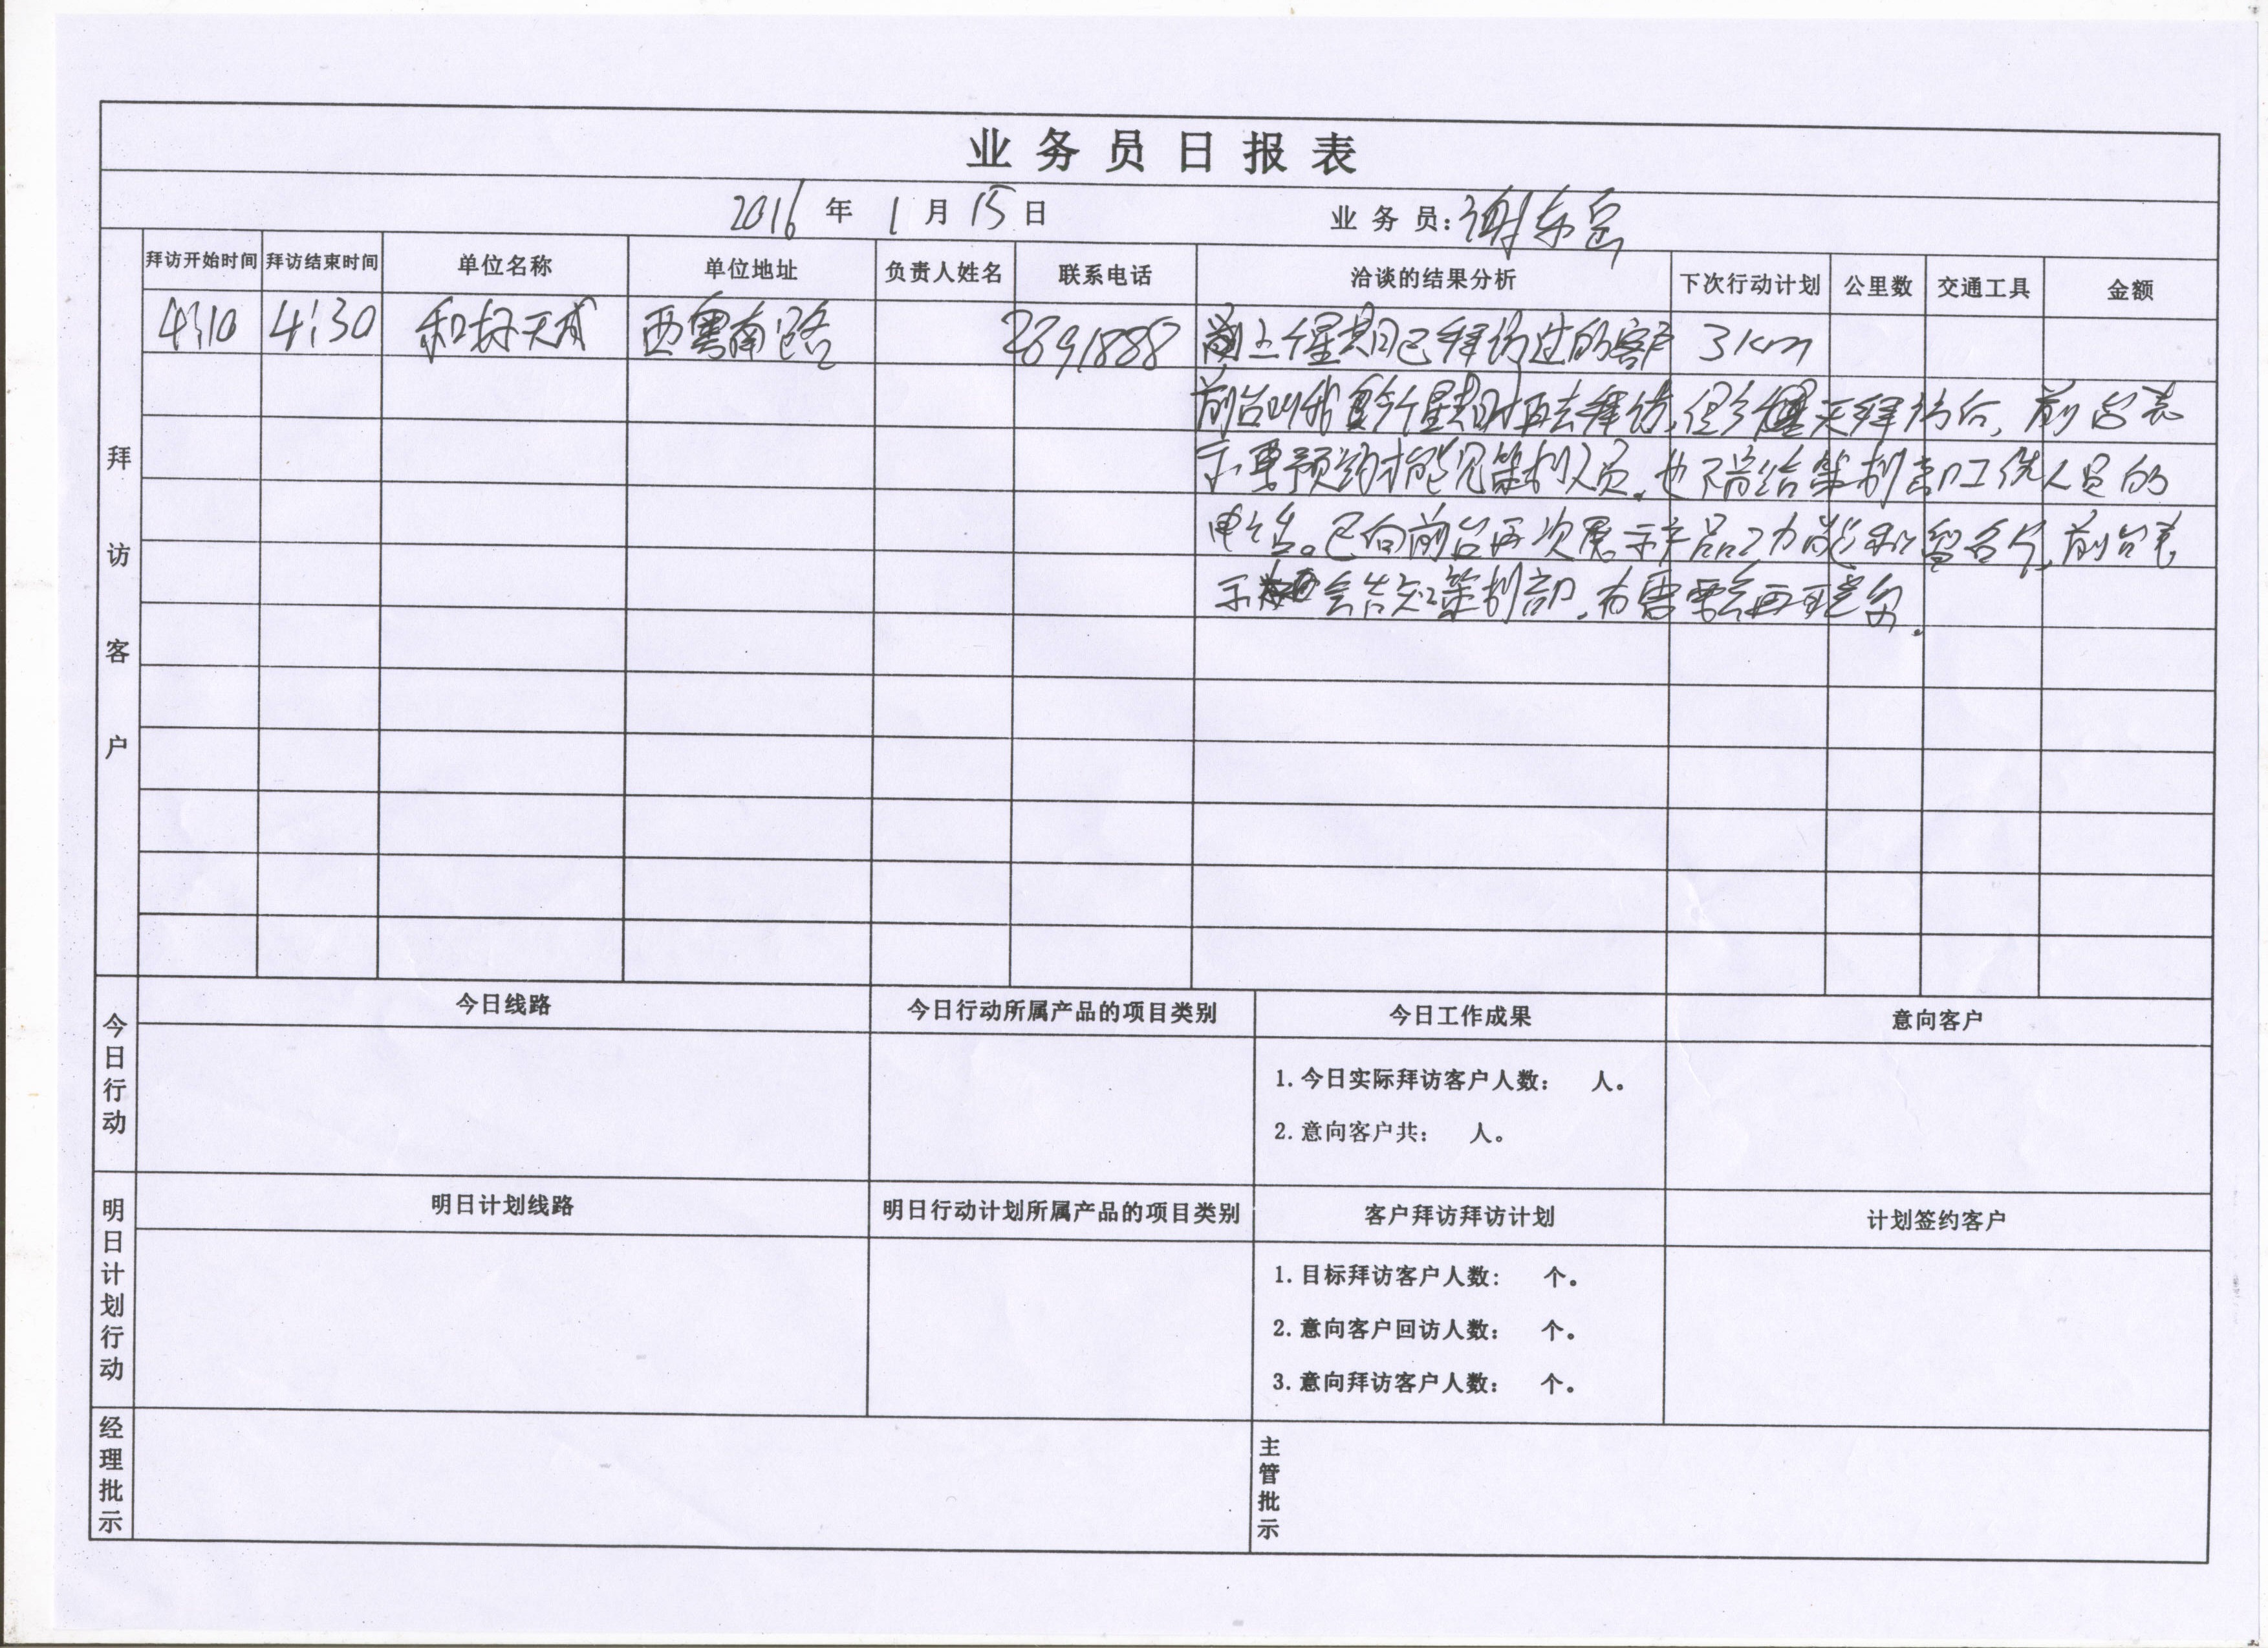 业务员日报表
2016 年 1 月 15 日 业务员:谢东
拜访客户
拜访开始时间 拜访结束时间 单位名称 单位地址 负责人姓名 联系电话 洽谈的结果分析 下次行动计划 公里数 交通工具 金额
4:10 4:30 和好天成 西粤南路 2891888 上个星期已拜访过的客户 3km
前台叫我这个星期再去拜访,但今天拜访后,前台表
示要预约才能见策划人员,也不肯给策划部工作人员的
电话。已向前台再次展示产品功能和留名片,前台表
示会告知策划部,有需要会再联系.
今日行动
今日线路 今日行动所属产品的项目类别 今日工作成果 意向客户
1.今日实际拜访客户人数: 人。
2.意向客户共: 人。
明日计划行动
明日计划线路 明日行动计划所属产品的项目类别 客户拜访拜访计划 计划签约客户
1.目标拜访客户人数: 个。
2.意向客户回访人数: 个。
3.意向拜访客户人数: 个。
经理批示
主管批示